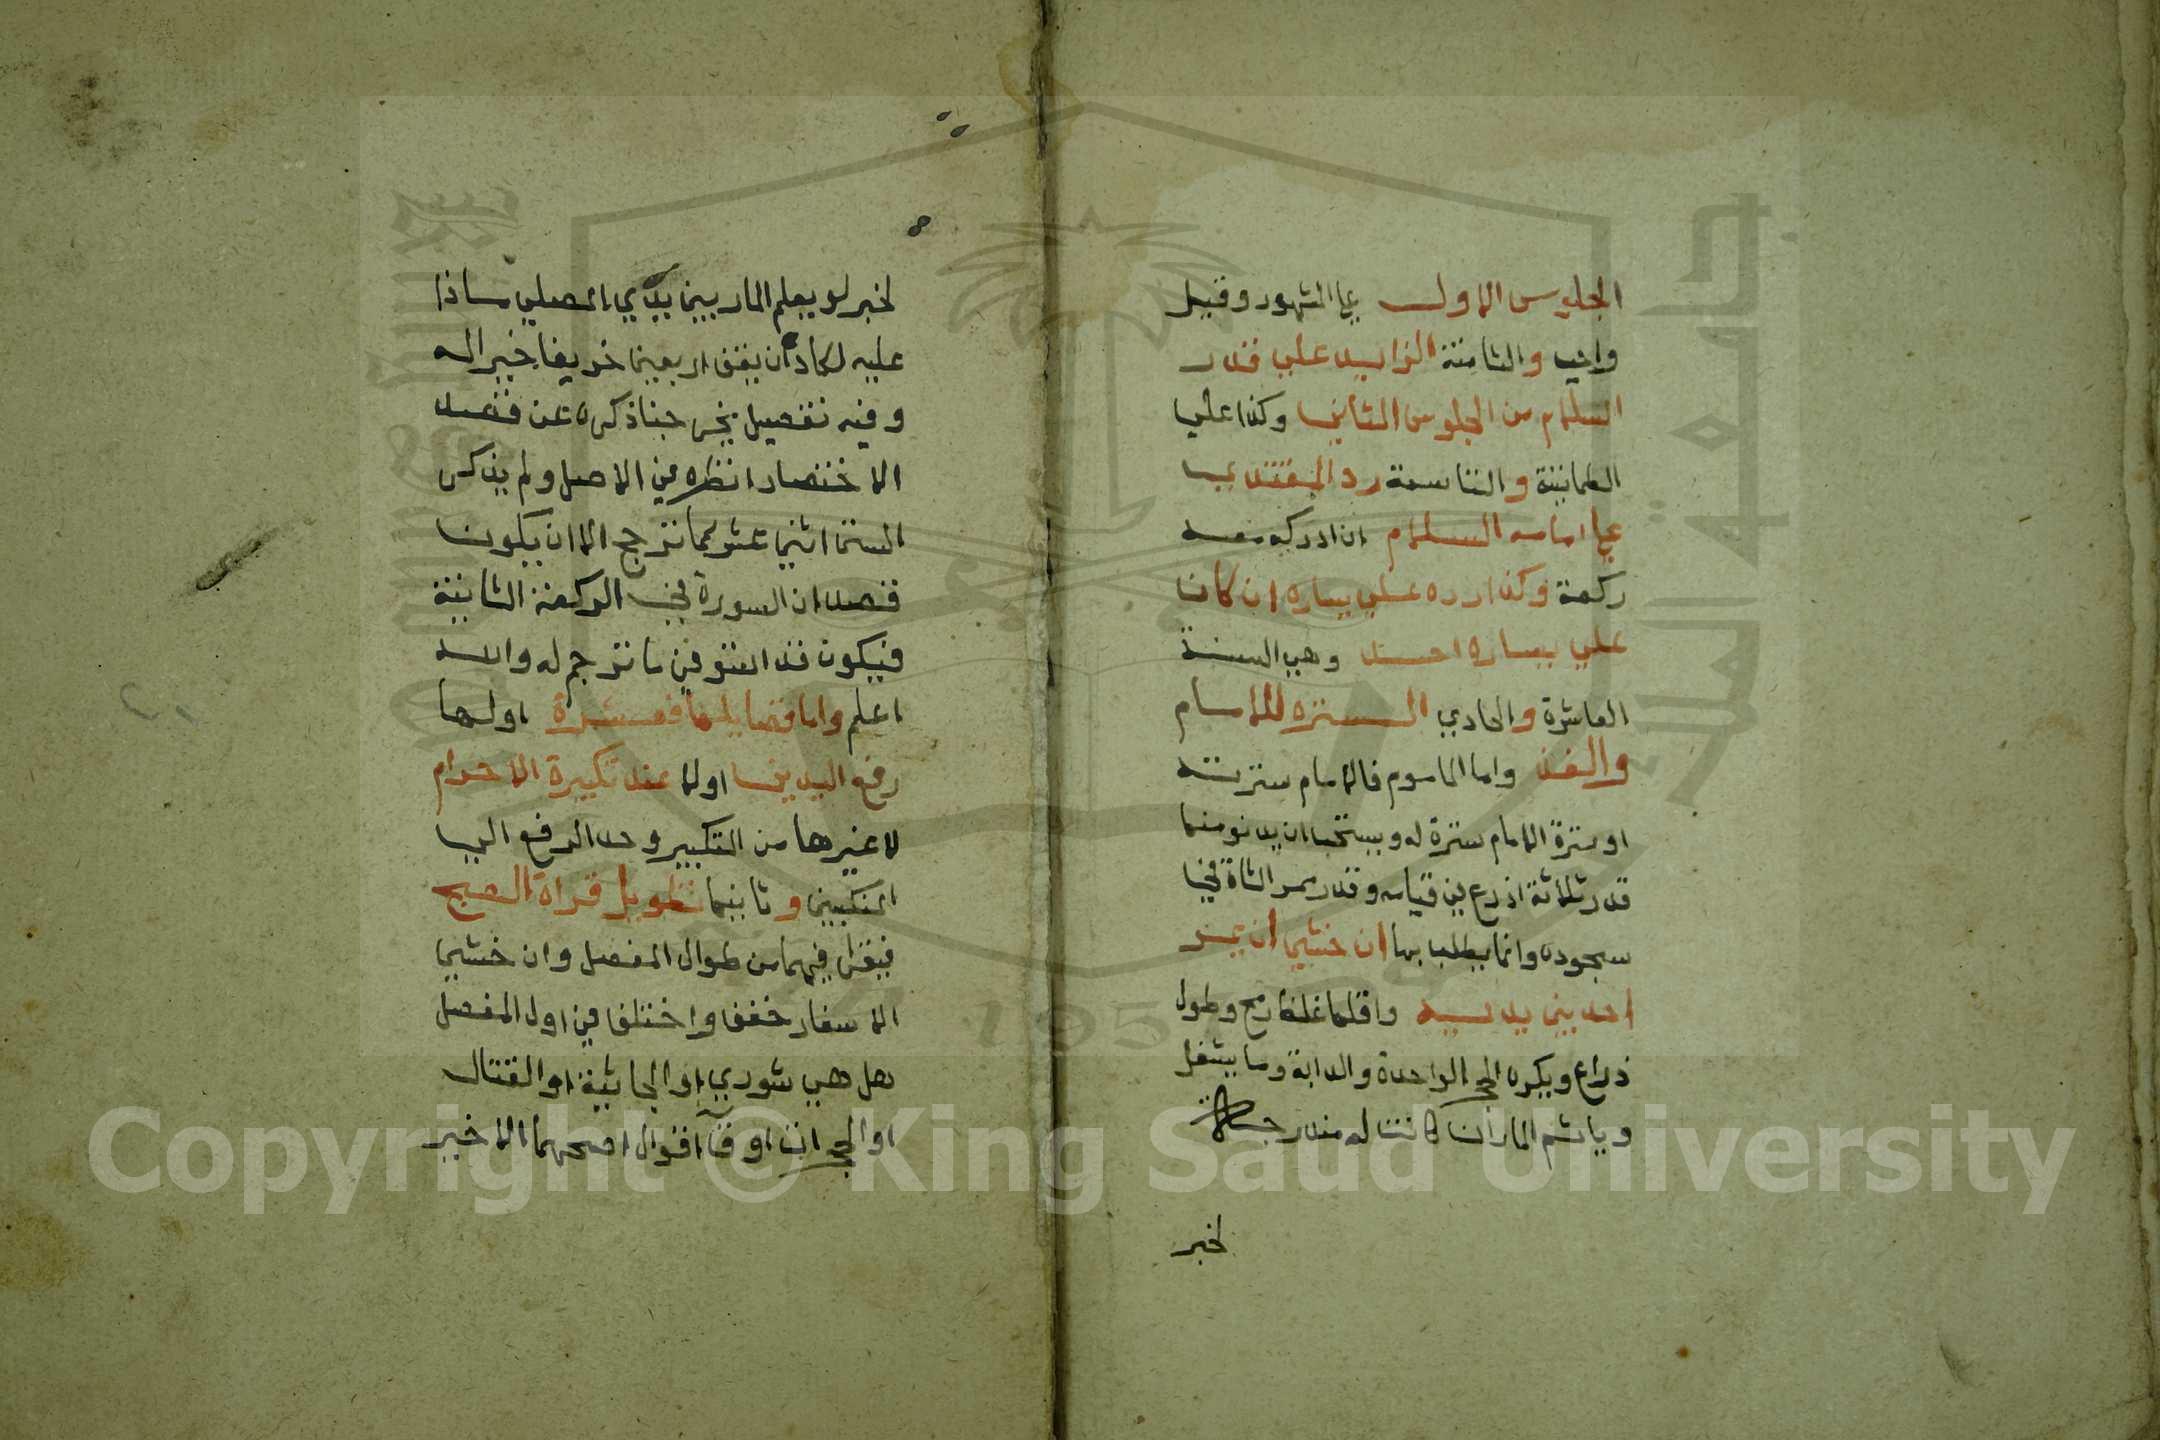 الجلوس الاول علي المشهور وقيل
واجب والثامنة الزايد علي قدر
السلام من الجلوس الثاني وكذا علي
الطمانينة والتاسعة رد المقتدي
علي امامه السلام ان ادرك معه
ركعة وكذا رده علي يساره ان كان
علي يساره احد وهي السنة
العاشرة والحادي السترة للامام
والفذ واما الماموم فالامام سترته
او سترة الامام سترة له ويستحب ان يدنو منها
قدر ثلاثة اذرع بين قيامه وقدر ممر الشاة في
سجوده وانما يطلب بها ان خشي ان يمر
احد بين يديه واقلها غلظ رمح وطول
ذراع ويكره الحجر الواحدة والدابة وما يشغل
وياثم المار ان كانت له مندرجة
لخبر
لخبر لو يعلم المار بين يدي المصلي ماذا
عليه لكان ان يقف اربعين خريفا خير اله
وفيه تفصيل يخرجنا ذكره عن قصد
الاختصار انظره في الاصل ولم يذكر
السنن اثني عشر كما ترجم الا ان يكون
قصد ان السورة في الركعة الثانية
فيكون قد استوفي ما ترجم له والله
اعلم واما فضايلها فعشرة اولها
رفع اليدين اولا عند تكبيرة الاحرام
لا غيرها من التكبير وحد الرفع الي
المنكبين وثانيها تطويل قراة الصبح
فيقرا فيهما من طوال المفصل وان خشي
الاسفار خفف واختلف في اول المفصل
هل هي شوري او الجاثية او القتال
او الحجرات او ق اقوال اصحهما الاخير
Copyright © King Saud University